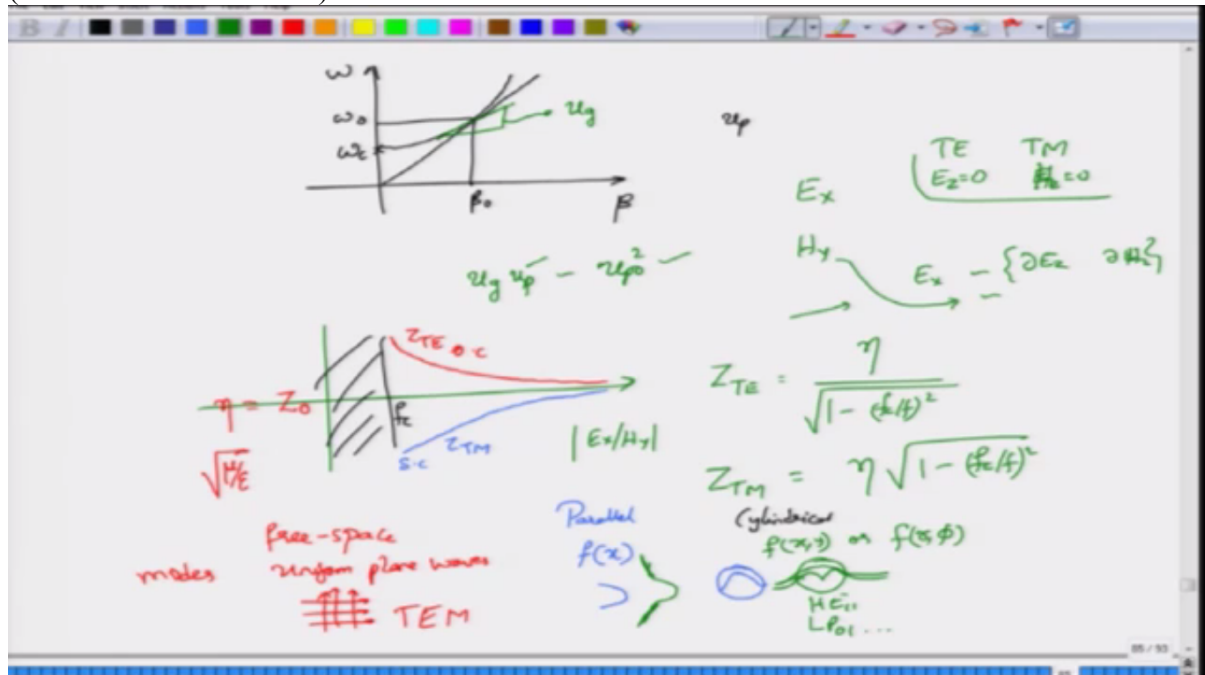 ω
ω₀
ωc
u_g
β₀
β
u_p
TE TM
E_z=0 H_z=0
E_x
H_y
E_x – {∂E_z ∂H_z}
u_g u_p – u_p0²
Z_TE o.c
η = Z₀
√μ/ε
f_c
s.c Z_TM
|E_x/H_y|
Z_TE = η / √1 - (f_c/f)²
Z_TM = η √1 - (f_c/f)²
free-space
modes uniform plane waves
TEM
Parallel
f(x)
Cylindrical
f(x,y) or f(r,φ)
HE₁₁
LP₀₁ ...
85 / 93